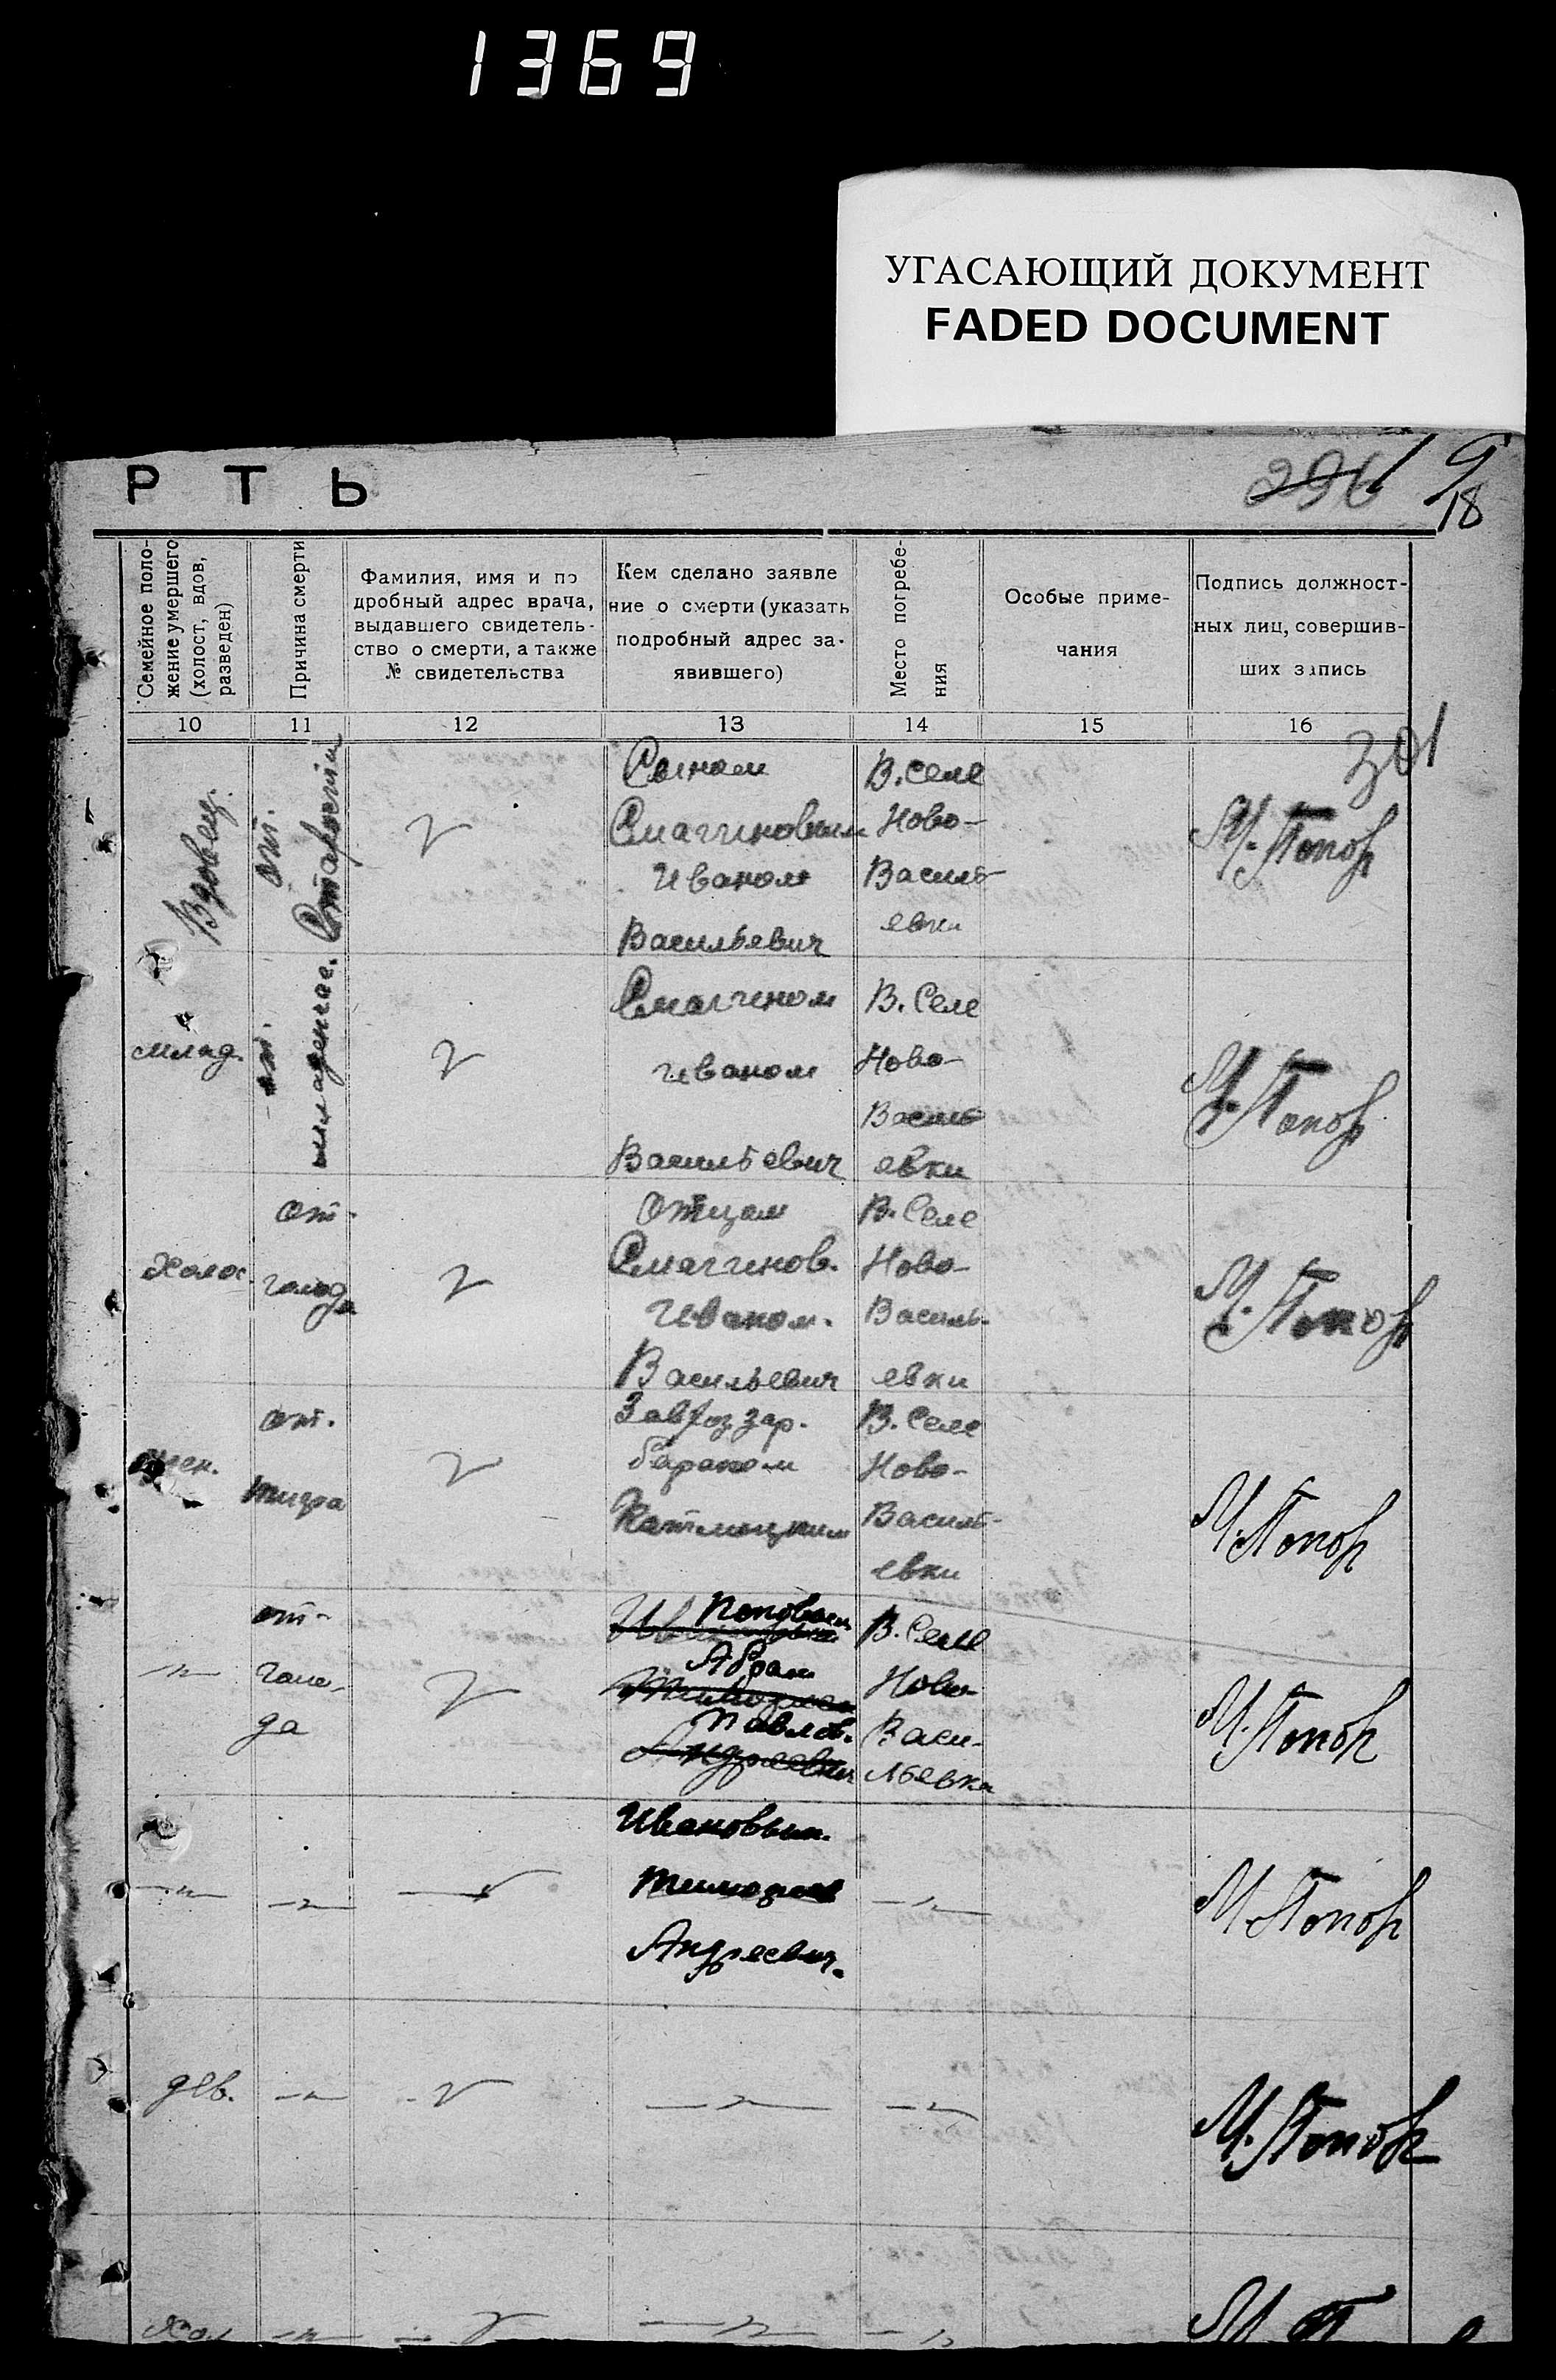 1369
УГАСАЮЩИЙ ДОКУМЕНТ
FADED DOCUMENT
Р Т Ь
296
18
Семейное поло-
жение умершего
(холост, вдов,
разведен)
Причина смерти
Фамилия, имя и по
дробный адрес врача,
выдавшего свидетель-
ство о смерти, а также
№ свидетельства
Кем сделано заявле
ние о смерти (указать
подробный адрес за-
явившего)
Место погребе-
ния
Особые приме-
чания
Подпись должност-
ных лиц, совершив-
ших запись
10 11 12 13 14 15 16
301
Вдовец.
от.
Старости
Сыном
Смагиновым
Иваном
Васильевич
В. селе
Ново-
Василь-
евки
М. Попов
млад.
от.
младенчес.
Смагином
Иваном
Васильевич
В. Селе
Ново-
Василь
евки
М. Попов
Холос.
от.
голода
Отцом
Смагинов.
Иваном.
Васильевич
В. Селе
Ново-
Василь-
евки
М. Попов
от.
тифа
бараком
В. Селе
Ново-
Василь-
евки
М. Попов
-"-
от-
голо-
да
Поповым
Абрам
Павлов.
В. Селе
Ново-
Васи-
льевка
М. Попов
-"- -"-
Ивановым.
Тимофей
Андреевич.
-"-
М. Попов
дев. -"- -"- -"-
М. Попов
Хол -"- -"- -"-